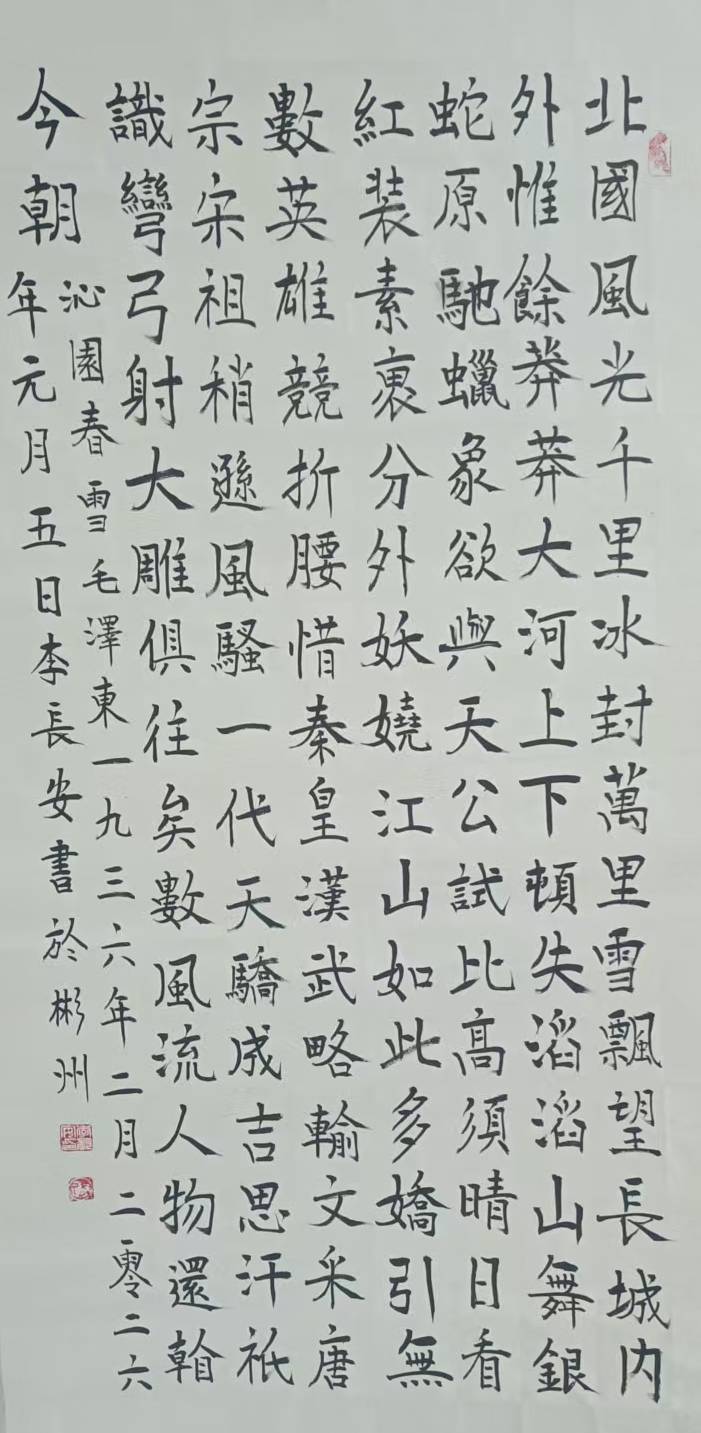 北國風光千里冰封萬里雪飄望長城內
外惟餘莽莽大河上下頓失滔滔山舞銀
蛇原馳蠟象欲與天公試比高須晴日看
紅装素裹分外妖嬈江山如此多嬌引無
數英雄競折腰惜秦皇漢武略輸文采唐
宗宋祖稍遜風騷一代天驕成吉思汗祇
識彎弓射大雕俱往矣數風流人物還
今朝
沁園春雪毛澤東一九三六年二月二零二六
年元月五日李長安書於彬州